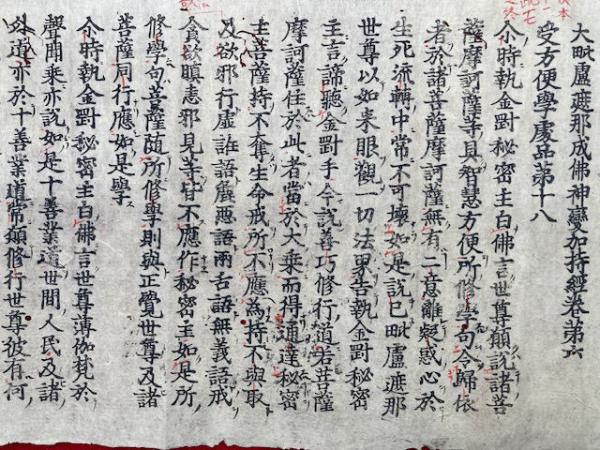 大毗盧遮那成佛神變加持經卷第六
受方便學處品第十八
尒時執金剛秘密主白佛言世尊願說諸菩
薩摩訶薩等具智慧方便所修學句令歸依
者於諸菩薩摩訶薩無有二意離疑惑心於
生死流轉中常不可壞如是說已毗盧遮那
世尊以如来眼觀一切法界告執金剛秘密
主言諦聽金剛手今說善巧修行道若菩薩
摩訶薩住於此者當於大乘而得通達秘密
主菩薩持不奪生命戒所不應為持不與取
及欲邪行虛誑語麁惡語兩舌語無義語戒
貪欲瞋恚邪見等皆不應作秘密主如是所
修學句菩薩随所修學則與正覺世尊及諸
菩薩同行應如是學
尒時執金剛秘密主白佛言世尊薄伽梵於
聲聞乘亦說如是十善業道世間人民及諸
外道亦於十善業道常願修行世尊彼有何